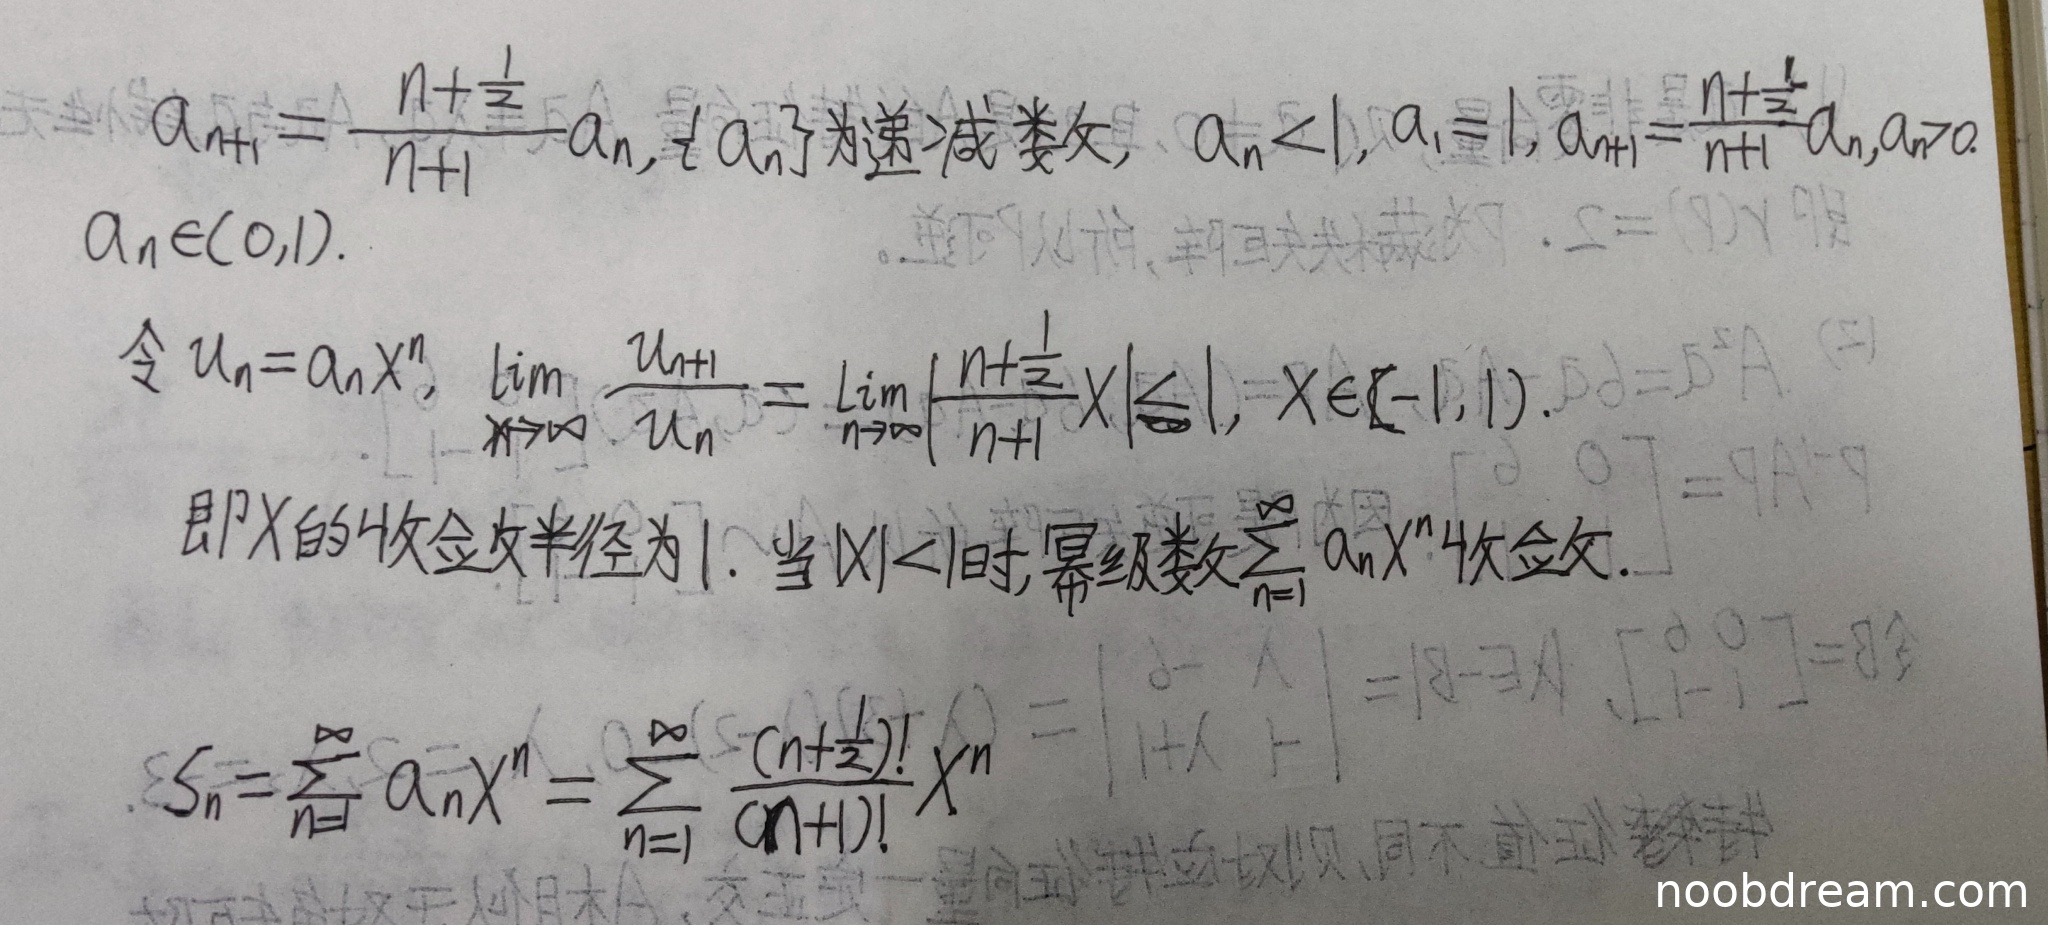 a_{n+1} = \frac{n+\frac{1}{2}}{n+1} a_n, {a_n}为递减数, a_n<1, a_1=1, a_{n+1} = \frac{n+\frac{1}{2}}{n+1} a_n, a_n>0.
a_n∈(0,1).
令 u_n = a_n x^n, \lim_{n→∞} \frac{u_{n+1}}{u_n} = \lim_{n→∞} |\frac{n+\frac{1}{2}}{n+1} x| ≤ 1, x∈[-1,1).
即X的收敛半径为1. 当|X|<1时,幂级数 \sum_{n=1}^{∞} a_n x^n 收敛.
S_n = \sum_{n=1}^{∞} a_n x^n = \sum_{n=1}^{∞} \frac{(n+\frac{1}{2})!}{(n+1)!} x^n
noobdream.com